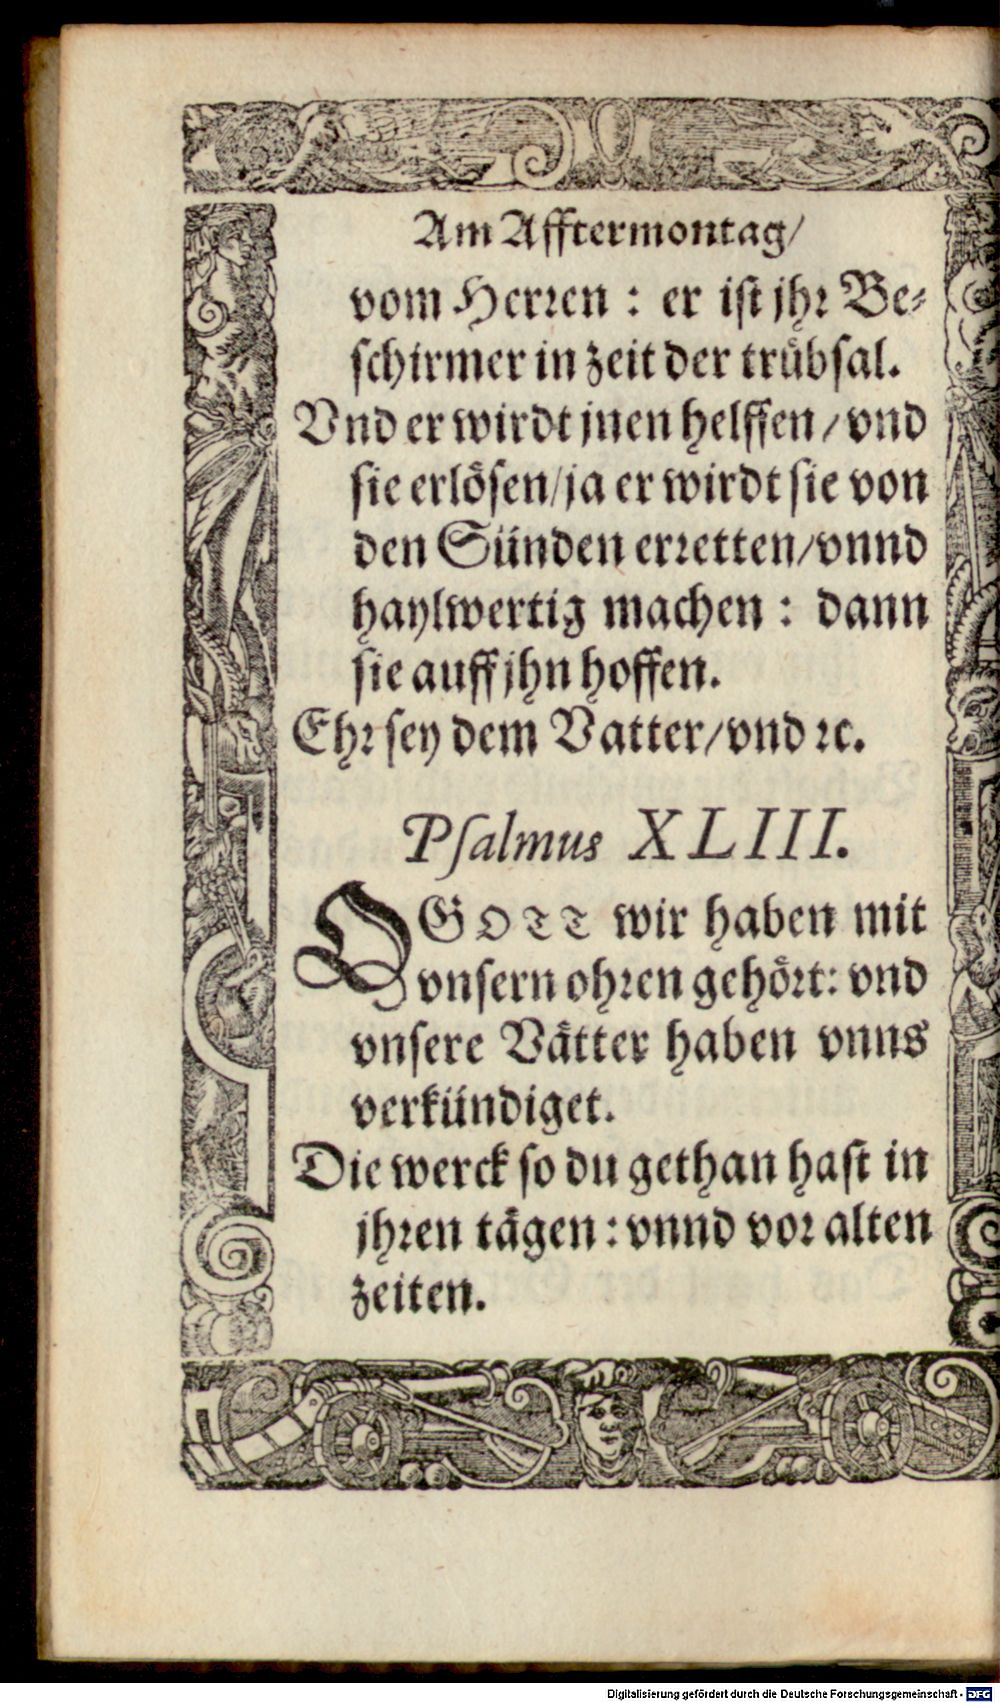 Am Afftermontag/
vom Herꝛen : er iſt jhꝛ Be⸗
ſchirmer in zeit der truͤbſal.
Vnd er wirdt jnen helffen / vnd
ſie erloͤſen/ja er wirdt ſie von
den Sünden erꝛetten/vnnd
haylwertig machen : dann
ſie auff jhn hoffen.
Ehꝛ ſey dem Vatter/vnd ꝛc.
Pſalmus XLIII.
O GOTT wir haben mit
vnſern ohꝛen gehoͤꝛt: vnd
vnſere Vaͤtter haben vnns
verkündiget.
Die werck ſo du gethan haſt in
jhꝛen taͤgen : vnnd voꝛ alten
zeiten.
Digitalisierung gefördert durch die Deutsche Forschungsgemeinschaft - DFG